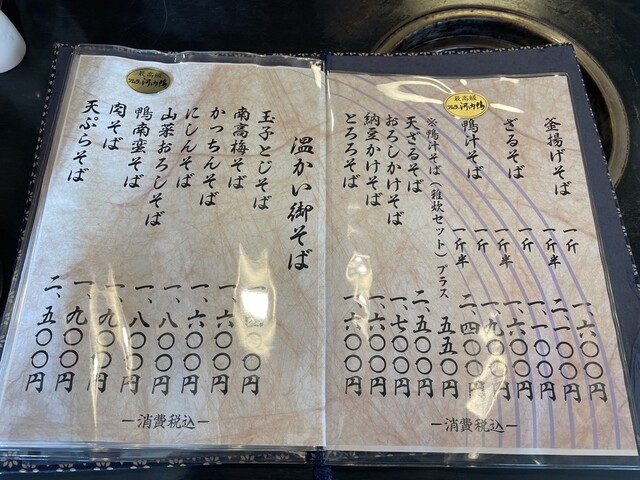 最高級
河内鴨
釜揚げそば 一斤 一、六〇〇円
一斤半 二、一〇〇円
ざるそば 一斤 一、一〇〇円
一斤半 一、六〇〇円
鴨汁そば 一斤 一、九〇〇円
一斤半 二、四〇〇円
※鴨汁そば(雑炊セット)プラス 五五〇円
天ざるそば 二、五〇〇円
おろしかけそば 一、七〇〇円
納豆かけそば 一、六〇〇円
とろろそば 一、六〇〇円
―消費税込―
最高級
河内鴨
温かい御そば
玉子とじそば 〇〇円
南高梅そば 一、六〇〇円
かっちんそば 一、六〇〇円
にしんそば 一、八〇〇円
山菜おろしそば 一、八〇〇円
鴨南蛮そば 一、九〇〇円
肉そば 一、九〇〇円
天ぷらそば 二、五〇〇円
―消費税込―